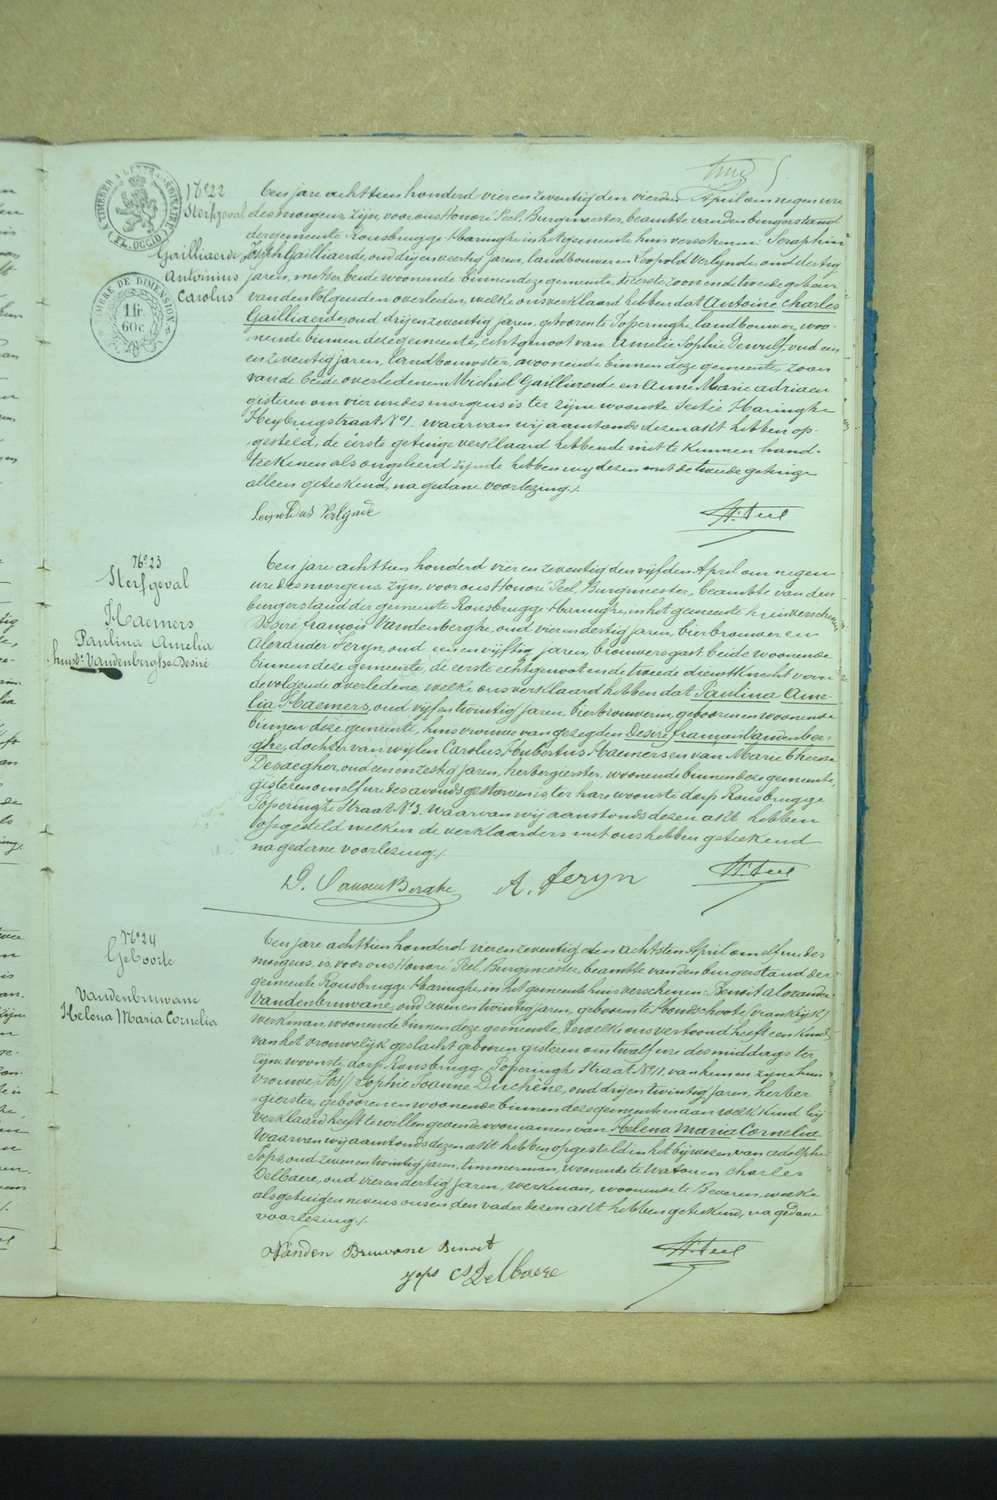 TIMBRE A L'EXTRAORDINAIRE
FL. OCCID.
TIMBRE DE DIMENSION
1 fr.
60 c.
N° 22
Sterfgeval
Gailliaerde
Antoinius
Carolus
Ten jare achttien honderd vier en zeventig den vierden April om negen ure
des morgens, zijn, voor ons Honoré Peel, Burgmeester, beambte van den burgerstand
der gemeente Rousbrugge-Haringhe in het gemeente huis verschenen: Seraphin
Joseph Gailliaerde, oud dry en veertig jaren, landbouwer en Leopold Verlynde, oud dertig
jaren, metser, beide woonende binnen deze gemeente de eerste zoon en de tweede gebuur
van den volgenden overleden, welke ons verklaard hebben dat Antoine Charles
Gailliaerde, oud drij en zeventig jaren, geboren te Poperinghe, landbouwer, woo-
nende binnen deze gemeente, echtgenoot van Amelie Sophie Dewulf, oud een
en zeventig jaren, landbouwster, woonende binnen deze gemeente, zoon
van de beide overledenen Michiel Gailliaerde en Anne Marie Adriaen
gisteren om vier ure des morgens is ter zijne woonste Sectie Haringhe
Heybrugstraat N° 1. waarvan wij aanstonds dezen akt hebben op-
gesteld, de eerste getuige verklaard hebbende niet te kunnen hand-
teekenen als ongeleerd zijnde hebben wij dezen met de tweede getuige
alleen geteekend, na gedane voorlezing.
Leopoldus Verlynde H. Peel
N° 23
Sterfgeval
Haemers
Paulina Amelia
huisv. Vandenberghe Desiré
Ten jare achttien honderd vier en zeventig den vijfden April om negen
ure des morgens zijn, voor ons Honoré Peel, Burgmeester, beambte van den
burgerstand der gemeente Rousbrugge-Haringhe, in het gemeente huis verschenen
Désiré françois Vandenberghe, oud vier en dertig jaren, bierbrouwer en
Alexander Feryn, oud een en vijftig jaren, brouwersgast beide woonende
binnen deze gemeente, de eerste echtgenoot en de tweede dienstknecht van
de volgende overledene, welke ons verklaard hebben dat Paulina Ame-
lia Haemers, oud vijf en twintig jaren, bierbrouwerin, geboren en woonende
binnen deze gemeente, huisvrouwe van gezegden Desiré françois Vandenber-
ghe, dochter van wijlen Carolus Hubertus Haemers en van Marie Theresia
Desaegher, oud een en zestig jaren, herbergierster, woonende binnen deze gemeente,
gisteren om elf ure des avonds gestorven is, ter hare woonste dorp Rousbrugge
Poperinghe Straat N° 3. waarvan wij aanstonds dezen akt hebben
opgesteld welken de verklaarders met ons hebben geteekend
na gedane voorlezing.
D. Vanden Berghe A. Feryn H. Peel
N° 24
Geboorte
Vandenbruwane
Helena Maria Cornelia
Ten jare achttien honderd vier en zeventig den achtsten April om elf ure des
morgens, is, voor ons Honoré Peel, Burgmeester, beambte van den burgerstand der
gemeente Rousbrugge-Haringhe, in het gemeente huis verschenen: Benoit Alexander
Vandenbruwane, oud zeven en twintig jaren, geboren te Hondschoote (Frankrijk)
werkman, woonende binnen deze gemeente, dewelke ons vertoond heeft een kind
van het vrouwelijk geslacht geboren gisteren om twalf ure des middags ter
zijne woonste dorp Rousbrugge Poperinghe Straat N° 11. van hem en zijne huis
vrouwe Sophie Joanne Duchène, oud drij en twintig jaren, herber
gierster, geboren en woonende binnen deze gemeente en aan welk kind hij
verklaard heeft te willen geven de voornamen van Helena Maria Cornelia.
Waarvan wij aanstonds dezen akt hebben opgesteld in het bijwezen van Adolphe
Jops, oud zeven en twintig jaren, timmerman, woonende te Watou en Charles
Delbaere, oud vier en dertig jaren, werkman, woonende te Beveren, welke
als getuigen nevens ons en den vader dezen akt hebben geteekend, na gedane
voorlezing.
Vanden Bruwane Benoit H. Peel
Jops Cs Delbaere